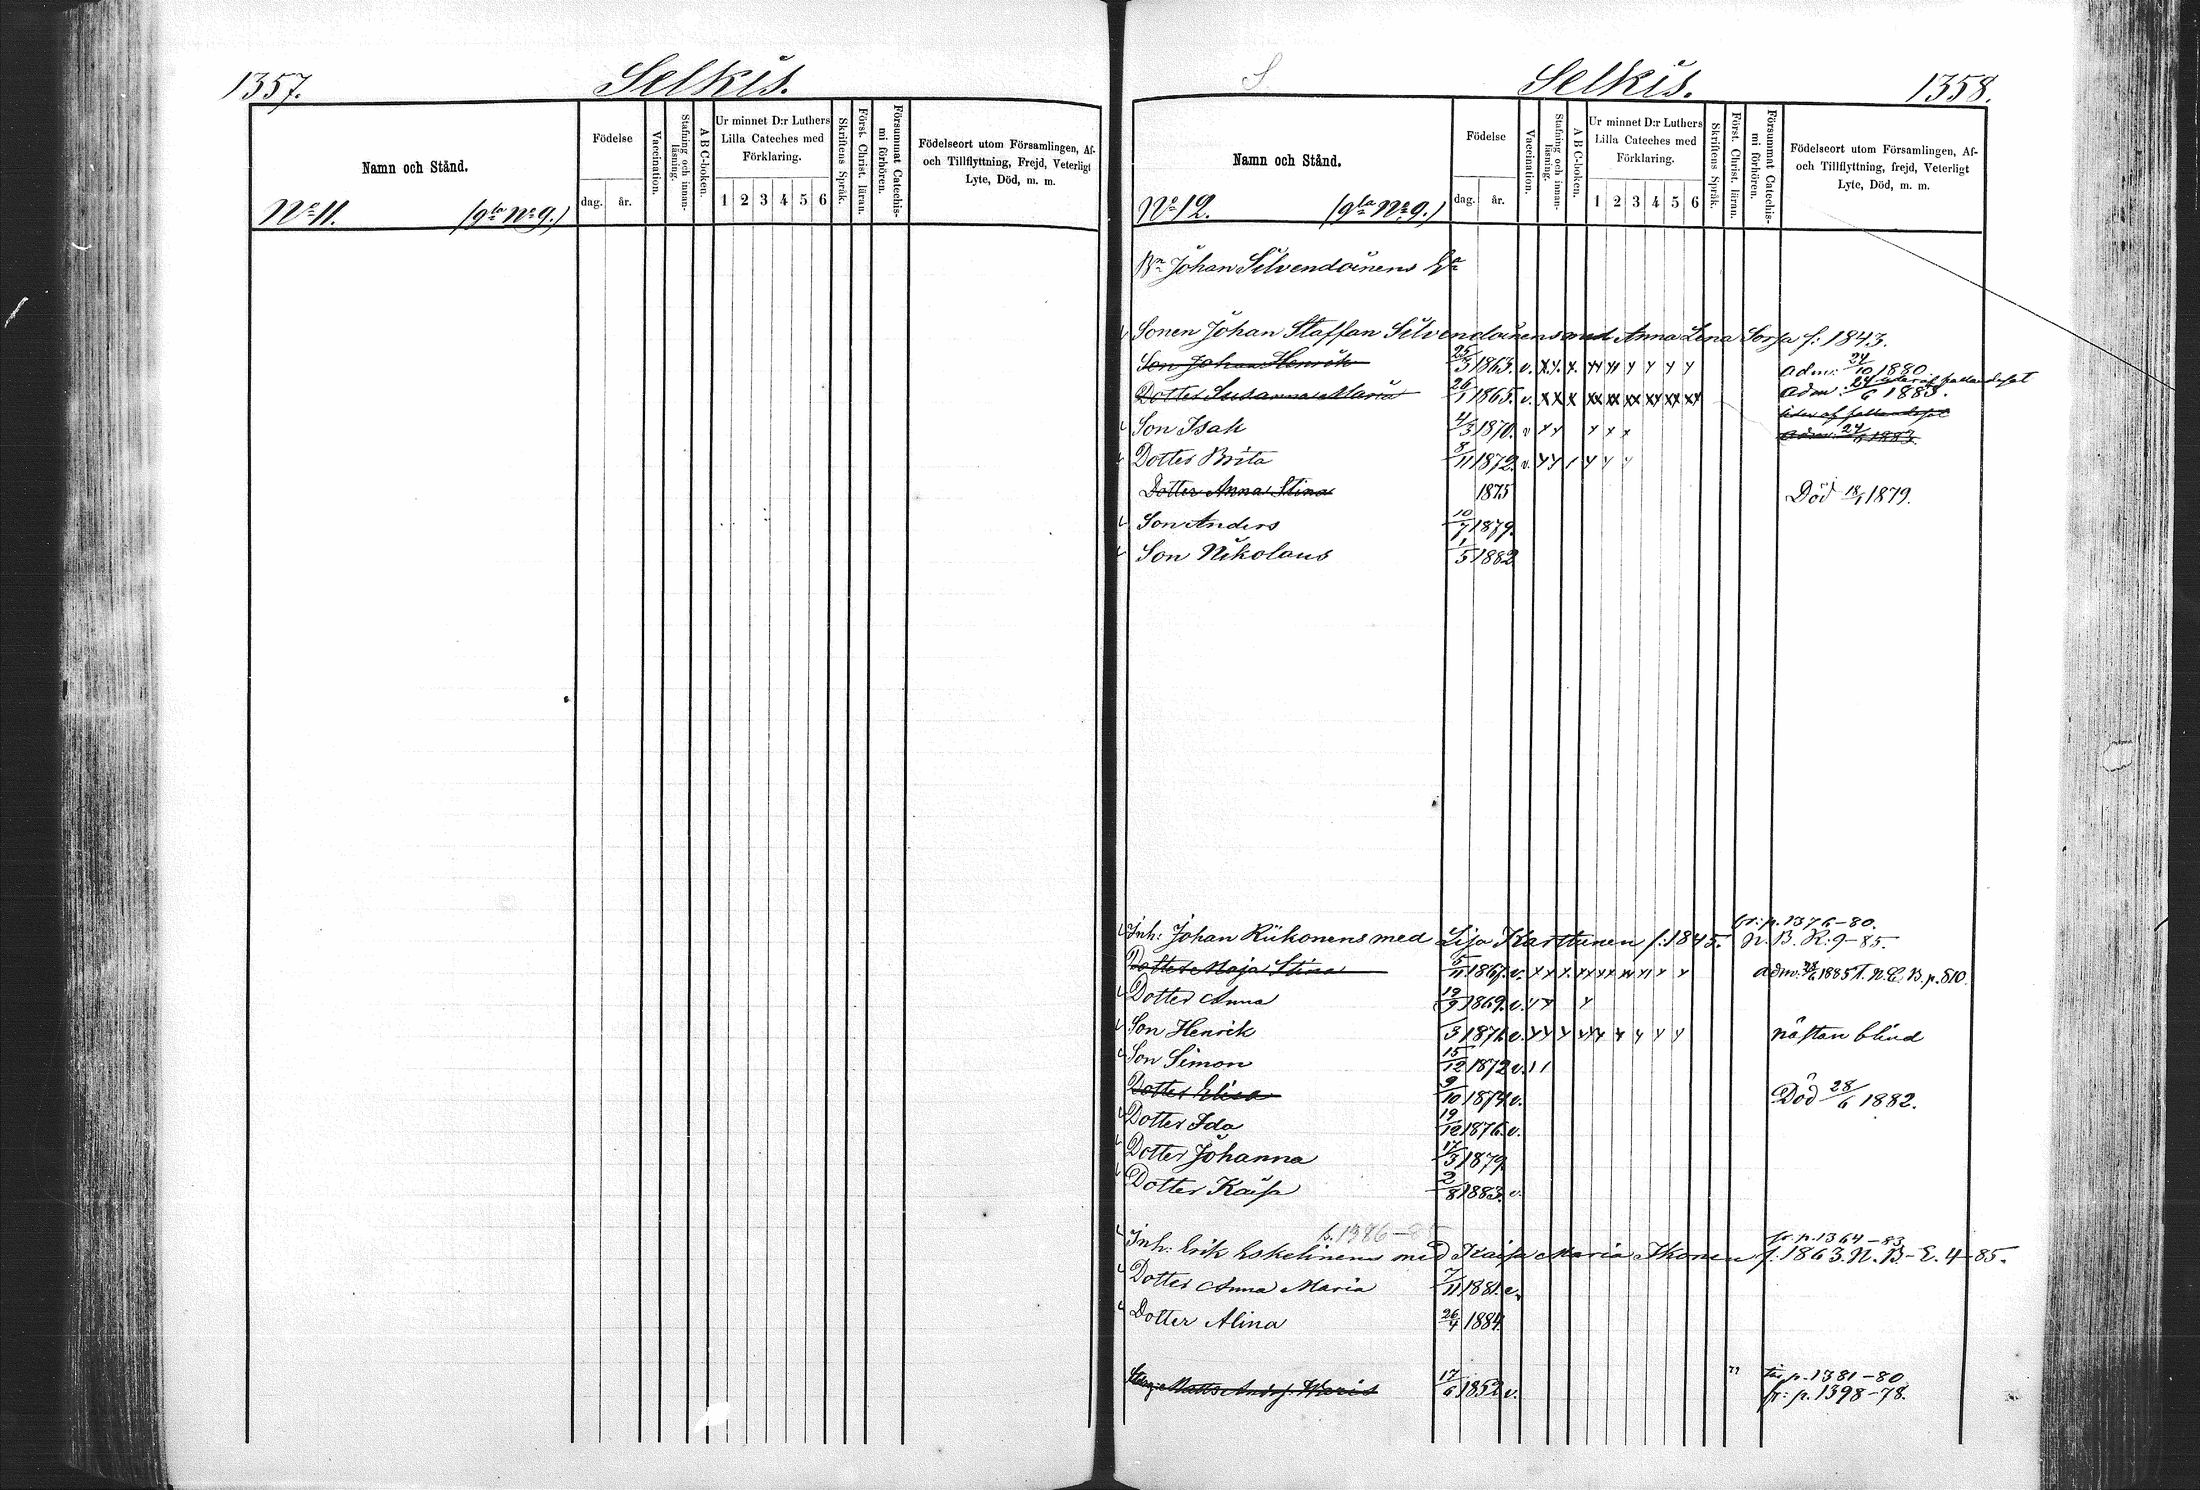 1357.
Selkis.
Namn och Stånd.
Födelse
dag.
år.
Vaccination.
Stafning och innan-
läsning.
A B C-boken.
Ur minnet D:r Luthers
Lilla Cateches med
Förklaring.
1 2 3 4 5 6
Skriftens Språk.
Först. Christ. läran.
Försummat Catechis-
mi förhören.
Födelseort utom Församlingen, Af-
och Tillflyttning, Frejd, Veterligt
Lyte, Död, m. m.
No 11. (gla No 9.)
S
Selkis.
1358.
Namn och Stånd.
Födelse
dag.
år.
Vaccination.
Stafning och innan-
läsning.
A B C-boken.
Ur minnet D:r Luthers
Lilla Cateches med
Förklaring.
1 2 3 4 5 6
Skriftens Språk.
Först. Christ. läran.
Försummat Catechis-
mi förhören.
Födelseort utom Församlingen, Af-
och Tillflyttning, frejd, Veterligt
Lyte, Död, m. m.
No 12. (gla No 9.)
Bn Johan Silvendoinens
Sonen Johan Staffan Silvendoinens med Anna Lena Sorsa f: 1843.
Son Johan Henrik 25/3 1863. v. x x. x. xx xx x x x x adm: 24/10 1880.
Dotter Susanna Maria 26/1 1865. v. x x x xx xx xx xx xx xx adm: 24/6 1883.
Son Isak 4/3 1870. v x x x x x adm: 24/6 1883.
Dotter Brita 8/11 1872. v. x x / x x x
Dotter Anna Stina 1875 Död 18/1 1879.
Son Anders 10/7 1879.
Son Nikolaus 1/5 1882
fr: p. 1376-80.
Inh: Johan Riikonens med Lisa Karttunen f: 1845. N. B. R: 9-85.
Dotter Maja Stina 5/11 1867. v. x x x. xx xx xx xx x x adm. 1885 N. B. p. 810.
Dotter Anna 19/9 1869. v. x x x
Son Henrik /3 1871. v. x x x xx x x x x x nästan blind
Son Simon 15/12 1872 v. 1 1
Dotter Elisa 9/10 1874. v. Död 28/6 1882.
Dotter Ida 19/12 1876. v.
Dotter Johanna 17/3 1879
Dotter Kaisa 2/8 1883. v.
fr. p. 1364-83
Inh: Erik Eskelinens med Kaisa Maria Ikonen f: 1863. N. B-E. 4-85.
Dotter Anna Maria 7/11 1881. v.
Dotter Alina 26/4 1884
Matts Andsf. 17/6 1852 v. " p. 1381-80
fr: p. 1398-78.